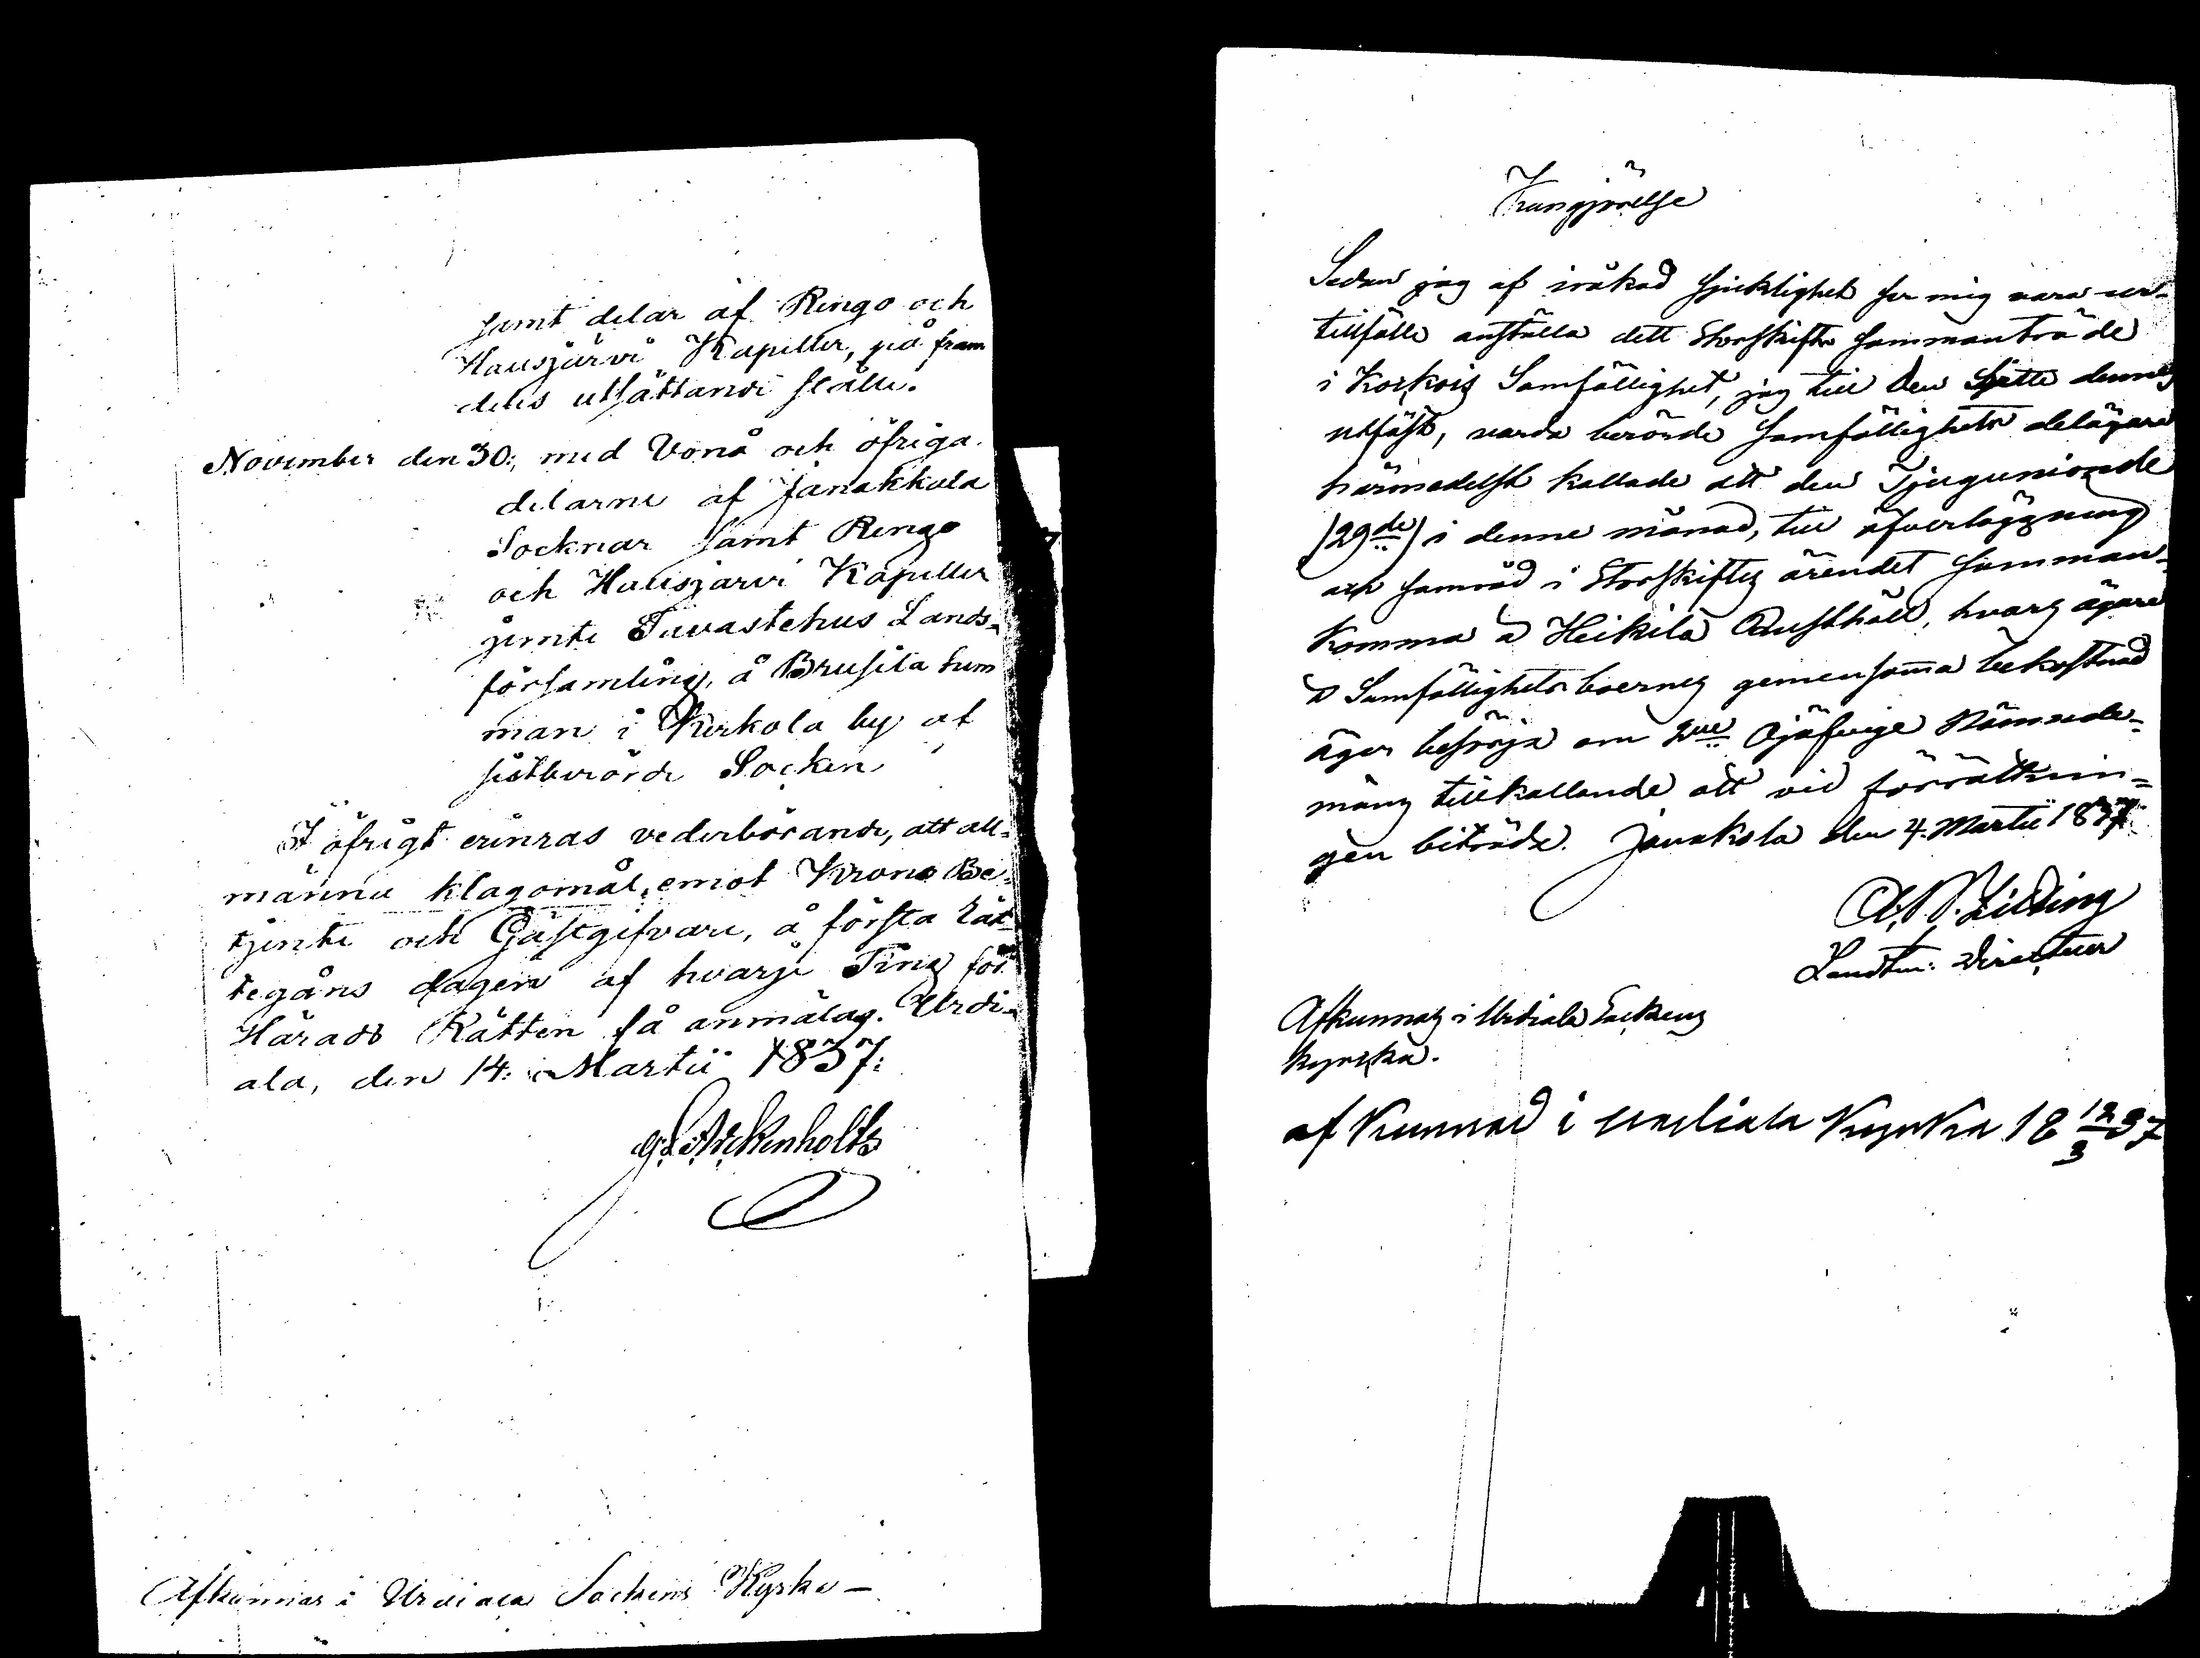 samt delar af Rengo och
Hausjärvi Kapeller, på fram
deles utsättande ställe.
November den 30:, med Vonå och öfriga
delarne af Janakkala
Socknar samt Rengo
och Hausjärvi Kapeller
jemte Tavastehus Lands-
församling, å Brusila hem
man i Kerkola by af
sistberörde Socken
I öfrigt erinras vederbörande, att all-
männa klagomål, emot Krono Be-
tjente och Gästgifvare, å första Rät
tegåns dagen af hvarje Ting för
Härads Rätten få anmälas. Urdi-
ala, den 14: Martii 1837:
Arckenholtz
Afkunnas i Urdiala Sockens Kyrka —
Kungjörelse
Sedan jag af iråkad sjuklighet ser mig vara ur-
tillfälle anställa dett Storskifts sammanträde
i Korkois Samfällighet, jag till den Sjette dennes
utfäst, varda berörde Samfällighets delägare
härmedelst kallade att den Tjugunionde
(29de) i denne månad, till öfverläggning
och samråd i Storskiftes ärendet samman-
komma å Heikilä Rusthåll, hvars ägare
å Samfällighets boernes gemensamma bekostnad
äger besörja om 2ne Ojäfvige Nämnde-
mäns tillkallande att vid förrättnin-
gen biträda. Janakala den 4. Martii 1837.
Lilding
Landtm: Directeur
Afkunnas i Urdiala Sockens
kyrka.
af Kunnad i urdiala Kyrka 18 12/3 37